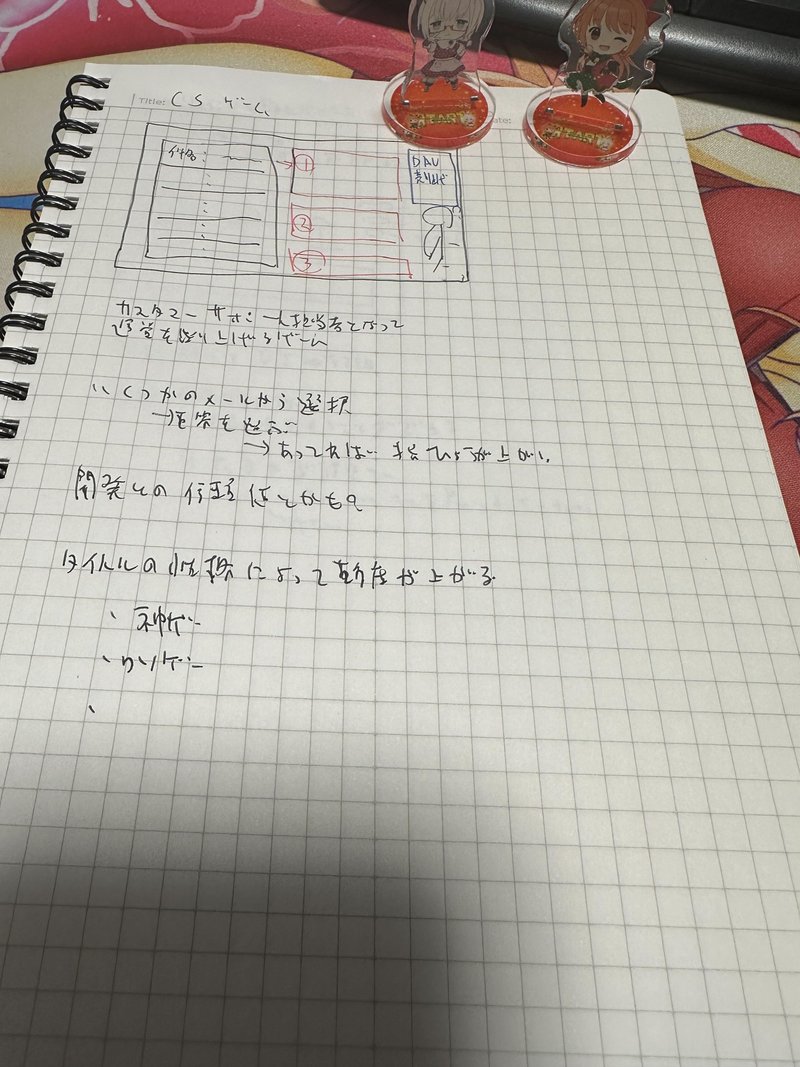 Title: CS ゲーム
件名:
①
②
③
DAU
カスタマーサポート担当者となって
運営を盛り上げるゲーム
いくつかのメールから選択
→回答を選ぶ
→あってれば
が上がり
開発との信頼値とかも?
タイトルの性格によって難度が上がる
・神ゲー
・クソゲー
・